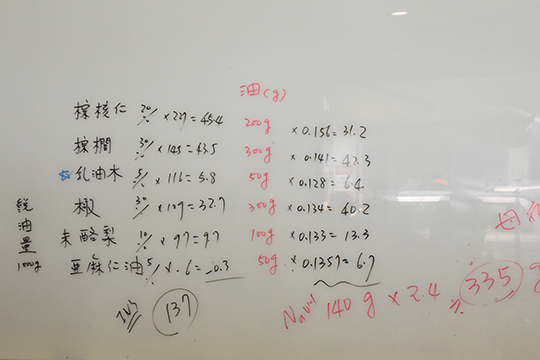 油(g)
棕核仁 20% ×227=45.4 200g ×0.156=31.2
棕櫚 30% ×145=43.5 300g ×0.141=42.3
乳油木 5% ×116=5.8 50g ×0.128=6.4
椒 30% ×109=32.7 300g ×0.134=40.2
未酪梨 10% ×97=9.7 100g ×0.133=13.3
亞麻仁油 5% ×-6=-0.3 50g ×0.1357=6.7
總油量 1000g
INS 137
NaOH 140g ×2.4 = 335 g